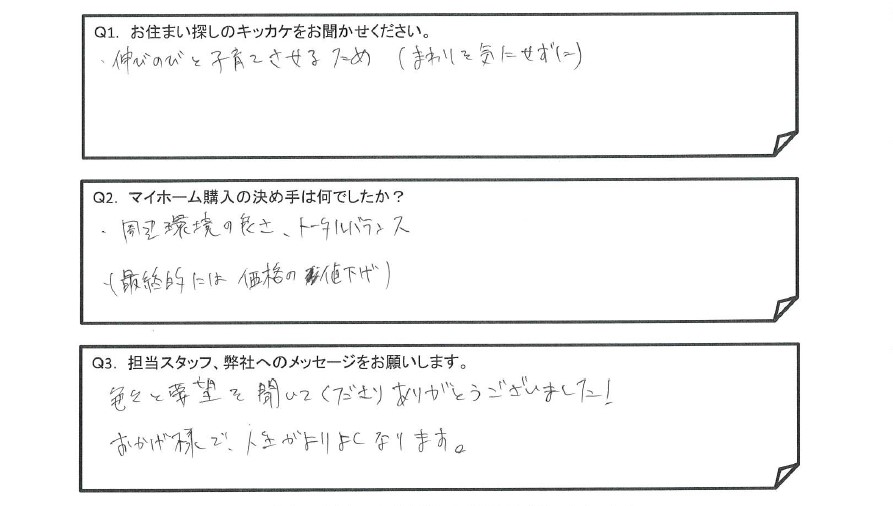 Q1. お住まい探しのキッカケをお聞かせください。
・伸びのびと子育てさせるため (まわりを気にせずに)
Q2. マイホーム購入の決め手は何でしたか？
・周辺環境の良さ、トータルバランス
・(最終的には価格の値下げ)
Q3. 担当スタッフ、弊社へのメッセージをお願いします。
色々と要望を聞いてくださりありがとうございました!
おかげ様で、人生がよりよくなります。